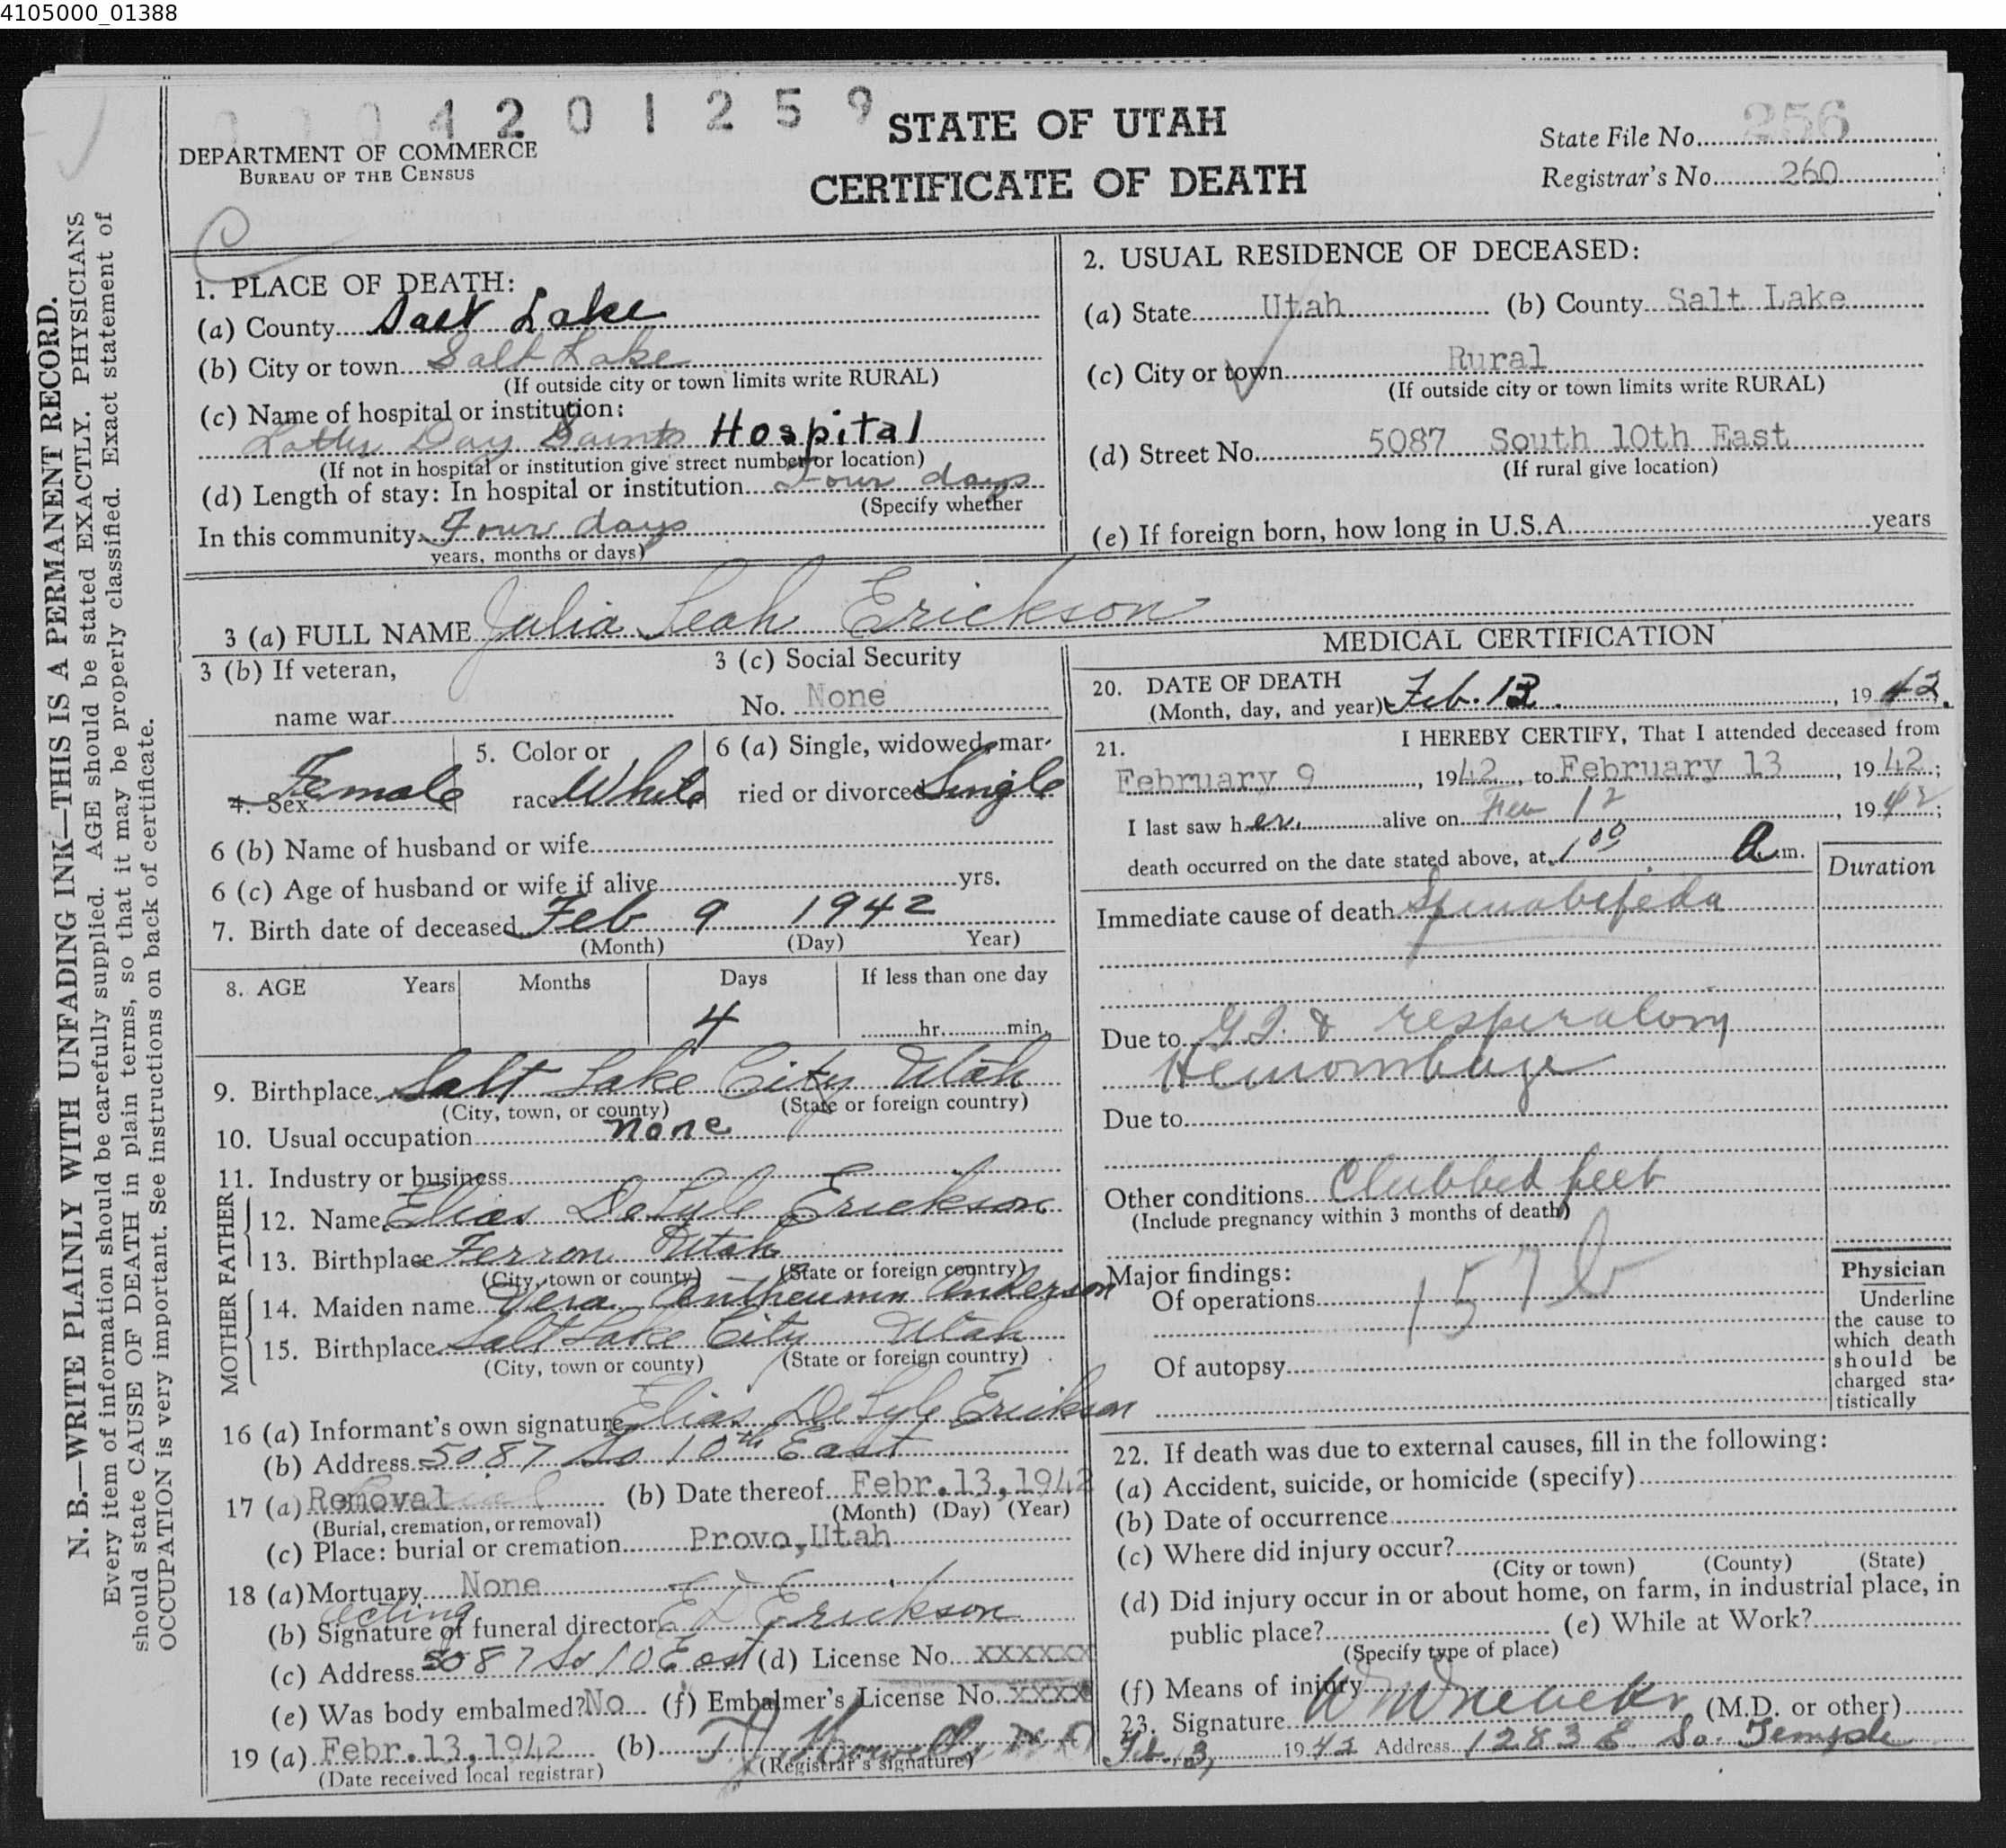 4105000_01388
4 2 0 1 2 5 9
STATE OF UTAH
CERTIFICATE OF DEATH
DEPARTMENT OF COMMERCE
BUREAU OF THE CENSUS
State File No. 256
Registrar's No. 260
N. B.—WRITE PLAINLY WITH UNFADING INK—THIS IS A PERMANENT RECORD.
Every item of information should be carefully supplied. AGE should be stated EXACTLY. PHYSICIANS
should state CAUSE OF DEATH in plain terms, so that it may be properly classified. Exact statement of
OCCUPATION is very important. See instructions on back of certificate.
1. PLACE OF DEATH:
(a) County Salt Lake
(b) City or town Salt Lake
(If outside city or town limits write RURAL)
(c) Name of hospital or institution:
Latter Day Saints Hospital
(If not in hospital or institution give street number or location)
(d) Length of stay: In hospital or institution Four days
(Specify whether
In this community Four days
years, months or days)
2. USUAL RESIDENCE OF DECEASED:
(a) State Utah (b) County Salt Lake
(c) City or town Rural
(If outside city or town limits write RURAL)
(d) Street No. 5087 South 10th East
(If rural give location)
(e) If foreign born, how long in U.S.A. years
3 (a) FULL NAME Julia Leah Erickson
3 (b) If veteran,
name war
3 (c) Social Security
No. None
4. Sex Female
5. Color or
race White
6 (a) Single, widowed, mar-
ried or divorced Single
6 (b) Name of husband or wife
6 (c) Age of husband or wife if alive yrs.
7. Birth date of deceased Feb 9 1942
(Month) (Day) Year)
8. AGE Years Months Days If less than one day
4 hr. min.
9. Birthplace Salt Lake City Utah
(City, town, or county) (State or foreign country)
10. Usual occupation none
11. Industry or business
FATHER
12. Name Elias DeLyle Erickson
13. Birthplace Ferron Utah
(City, town or county) (State or foreign country)
MOTHER
14. Maiden name Vera Anderson
15. Birthplace Salt Lake City Utah
(City, town or county) (State or foreign country)
16 (a) Informant's own signature Elias DeLyle Erickson
(b) Address 5087 So 10th East
17 (a) Removal (b) Date thereof Febr.13,1942
(Burial, cremation, or removal) (Month) (Day) (Year)
(c) Place: burial or cremation Provo,Utah
18 (a) Mortuary None
acting
(b) Signature of funeral director E D Erickson
(c) Address 5087 So 10 East (d) License No. XXXXXX
(e) Was body embalmed? No (f) Embalmer's License No. XXXX
19 (a) Febr.13,1942 (b)
(Date received local registrar) (Registrar's signature)
MEDICAL CERTIFICATION
20. DATE OF DEATH
(Month, day, and year) Feb. 13, 1942.
21. I HEREBY CERTIFY, That I attended deceased from
February 9, 1942, to February 13, 1942;
I last saw her alive on Feb 12, 1942;
death occurred on the date stated above, at 1 00 A.m.
Duration
Immediate cause of death Spinabifeda
Due to G I. & respiratory
Hemorrhage
Due to
Other conditions Clubbed feet
(Include pregnancy within 3 months of death)
157b
Major findings:
Of operations
Of autopsy
Physician
Underline
the cause to
which death
should be
charged sta-
tistically
22. If death was due to external causes, fill in the following:
(a) Accident, suicide, or homicide (specify)
(b) Date of occurrence
(c) Where did injury occur?
(City or town) (County) (State)
(d) Did injury occur in or about home, on farm, in industrial place, in
public place? (e) While at Work?
(Specify type of place)
(f) Means of injury
23. Signature W M Nebeker (M.D. or other)
Feb. 13, 1942 Address 1283 E So. Temple